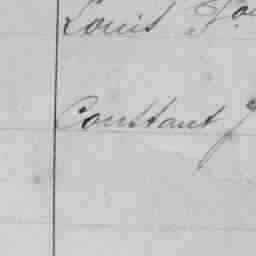 Louis
Constant